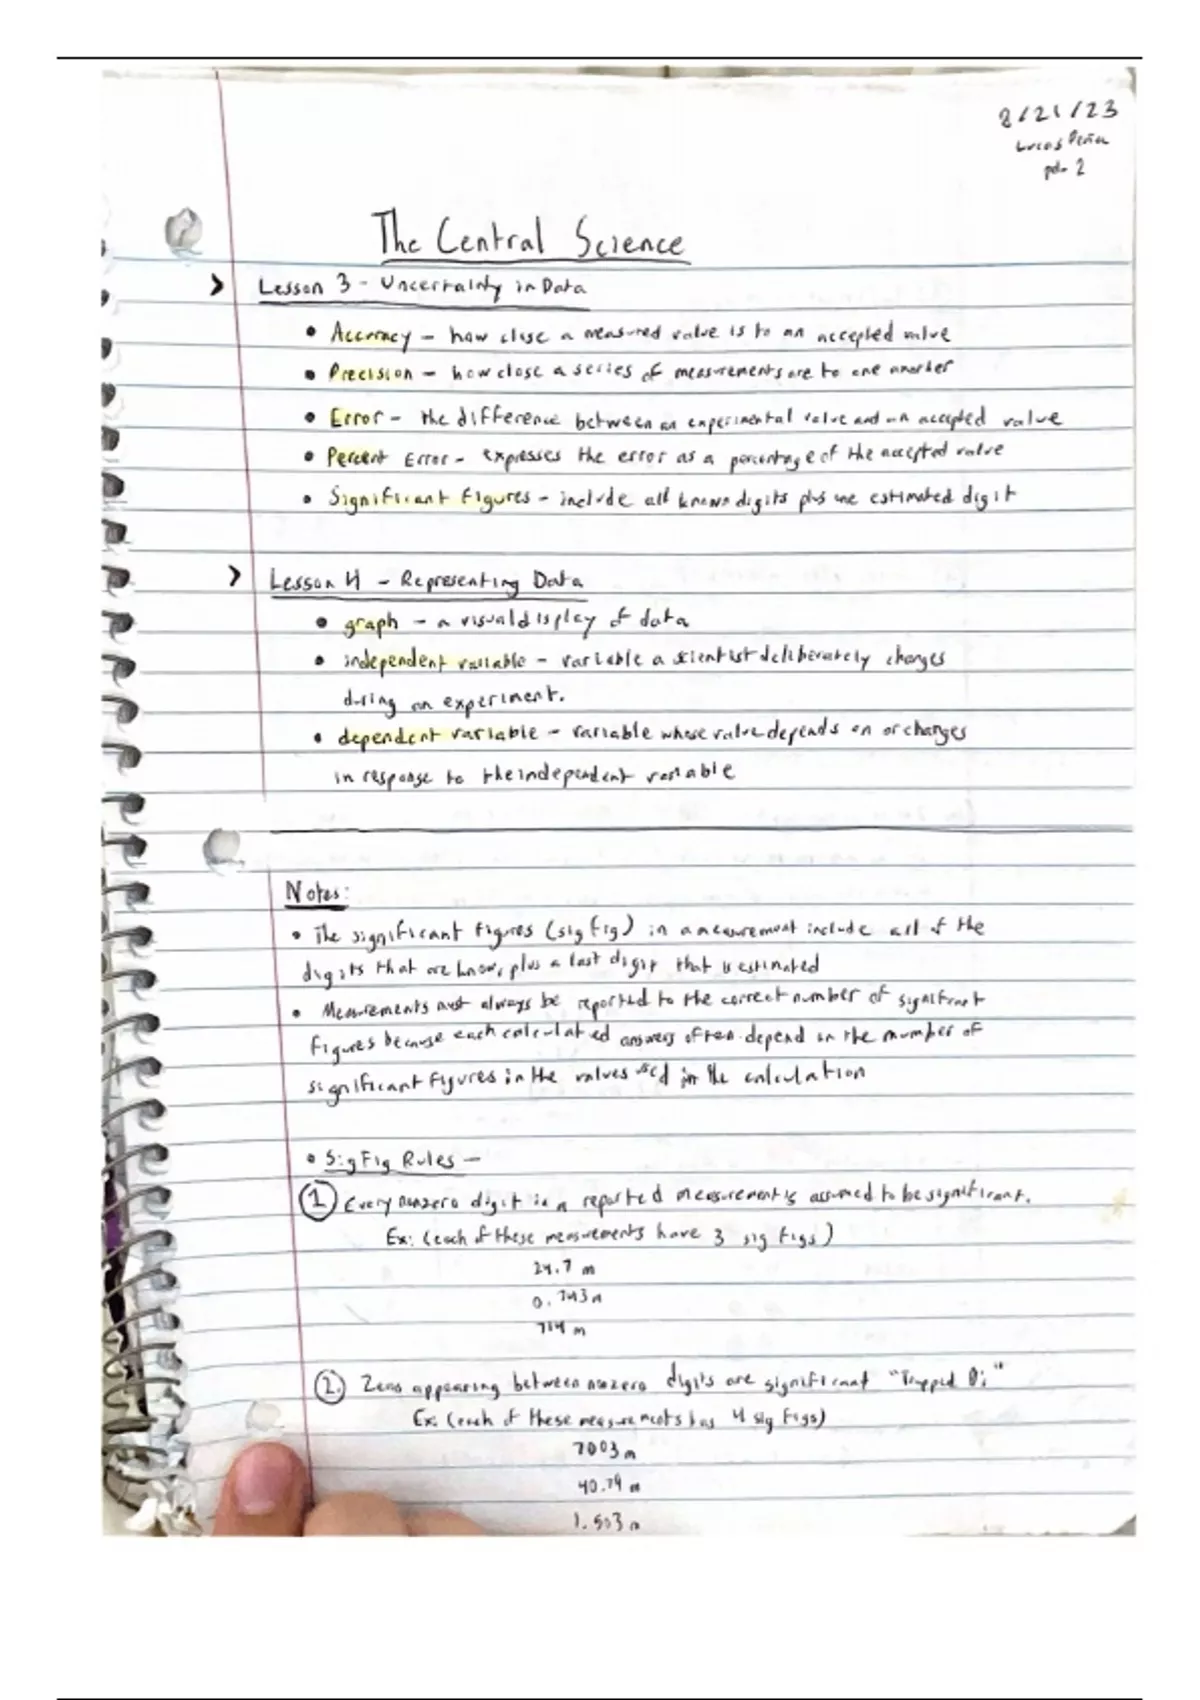 8/21/23
Lucas Peña
pd. 2
The Central Science
> Lesson 3 - Uncertainty in Data
• Accuracy - how close a measured value is to an accepted value
• Precision - how close a series of measurements are to one another
• Error - the difference between an experimental value and an accepted value
• Percent Error - expresses the error as a percentage of the accepted value
• Significant Figures - include all known digits plus one estimated digit
> Lesson 4 - Representing Data
• graph - a visual display of data
• independent variable - variable a scientist deliberately changes
during an experiment.
• dependent variable - variable whose value depends on or changes
in response to the independent variable
Notes:
• The significant figures (sig fig) in a measurement include all of the
digits that are known, plus a last digit that is estimated
• Measurements must always be reported to the correct number of significant
figures because each calculated answers often depend on the number of
significant figures in the values used in the calculation
• Sig Fig Rules -
1 Every nonzero digit in a reported measurement is assumed to be significant.
Ex: (each of these measurements have 3 sig figs)
24.7 m
0.743 m
714 m
2. Zeros appearing between nonzero digits are significant "Trapped 0;"
Ex: (each of these measurements has 4 sig figs)
7003 m
40.79 m
1.503 m